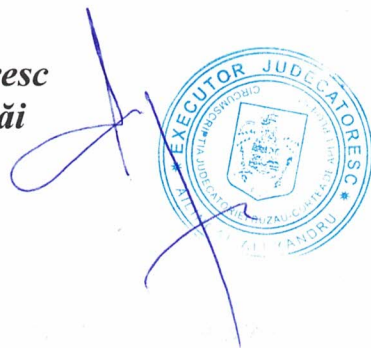 resc
ăi
* EXECUTOR JUDECĂTORESC *
CIRCUMSCRIPȚIA JUDECĂTORIEI BUZĂU-CURTEA DE APEL
ALEXANDRU